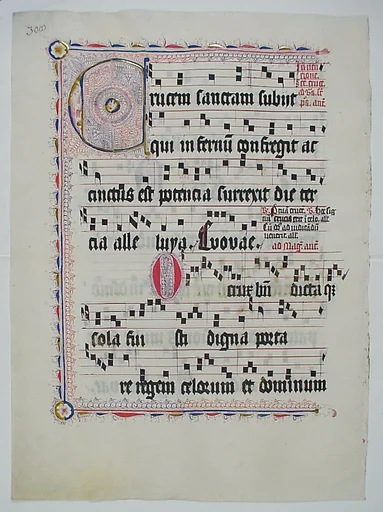 300
Crucem sanctam subiit
qui infernū confregit ac
cinctus est potencia surrexit die ter
cia alle luya. Evovae.
ad mag̃. anñ.
O crux bñ dicta q̃
sola fui sti digna porta
re regem celorum et dominum